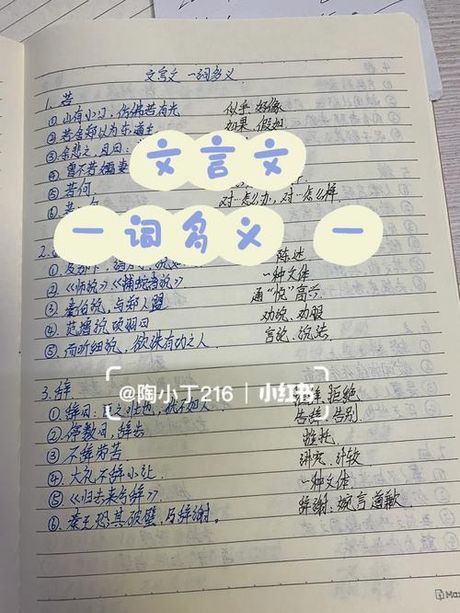 文言文 一词多义
1. 若
① 山有小口,仿佛若有光 似乎,好像
② 若舍郑以为东道主 如果,假如
③ 余悲之,且曰:
④ 曾不若孀妻
⑤ 若何
对…怎么办,对…怎么样
文言文
一词多义 一
陈述
② 《师说》《捕蛇者说》 一种文体
③ 秦伯说,与郑人盟 通“悦”高兴
④ 范增说项羽曰 劝说,劝服
⑤ 而听细说,欲诛有功之人 言论,说法
3. 辞
@陶小丁216 小红书
① 辞曰: 推辞,拒绝
② 停数日,辞去 告辞,告别
③ 不辞劳苦 推托
④ 大礼不辞小让 讲究,计较
⑤ 《归去来兮辞》 一种文体
⑥ 秦王恐其破璧,乃辞谢。 辞谢:婉言道歉